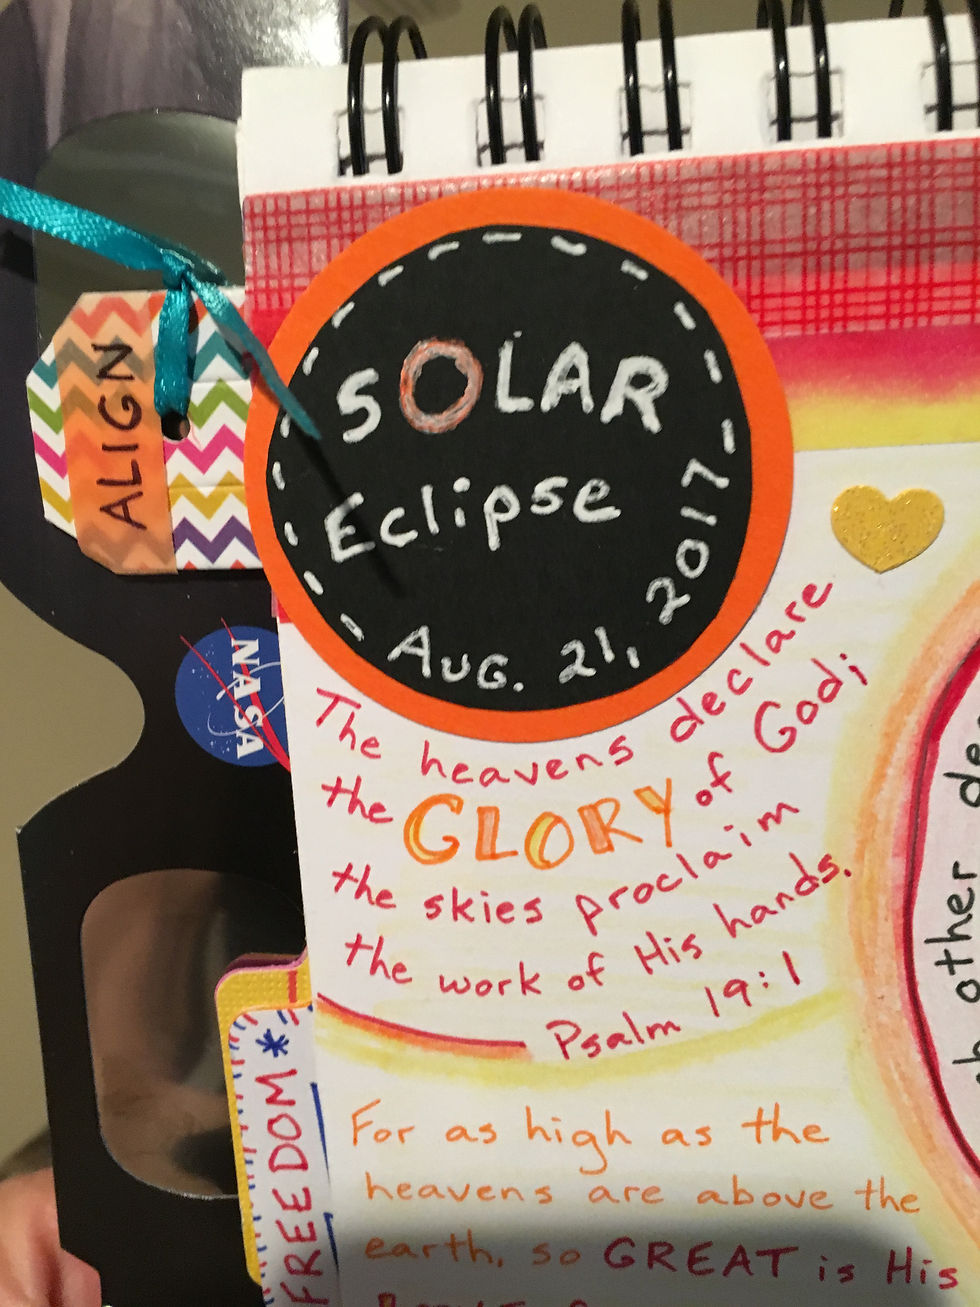 SOLAR
Eclipse
Aug. 21, 2017
ALIGN
NASA
The heavens declare
the GLORY of God;
the skies proclaim
the work of His hands.
Psalm 19:1
FREEDOM *
For as high as the
heavens are above the
earth, so GREAT is His
other